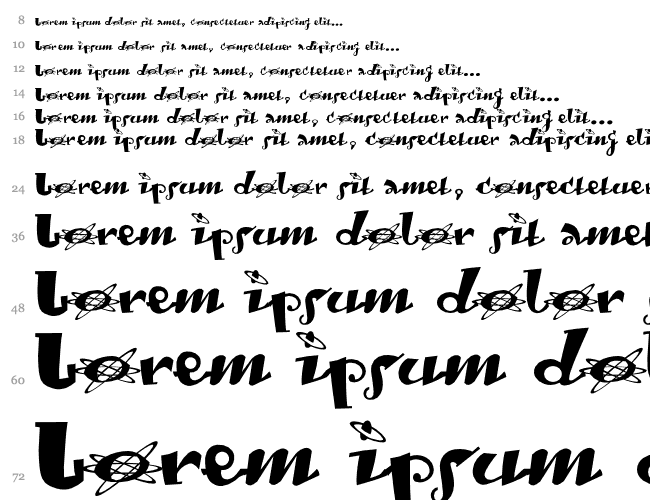 8 Lorem ipsum dolor sit amet, consectetuer adipiscing elit...
10 Lorem ipsum dolor sit amet, consectetuer adipiscing elit...
12 Lorem ipsum dolor sit amet, consectetuer adipiscing elit...
14 Lorem ipsum dolor sit amet, consectetuer adipiscing elit...
16 Lorem ipsum dolor sit amet, consectetuer adipiscing elit...
18 Lorem ipsum dolor sit amet, consectetuer adipiscing eli
24 Lorem ipsum dolor sit amet, consectetuer
36 Lorem ipsum dolor sit amet
48 Lorem ipsum dolor
60 Lorem ipsum dol
72 Lorem ipsum